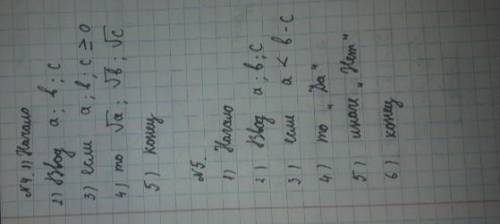 №4. 1) Начало
2) Ввод a; b; c
3) если a; b; c ≥ 0
4) то √a; √b; √c
5) конец
№5.
1) Начало
2) Ввод a; b; c
3) если a < b - c
4) то "Да"
5) иначе "Нет"
6) конец